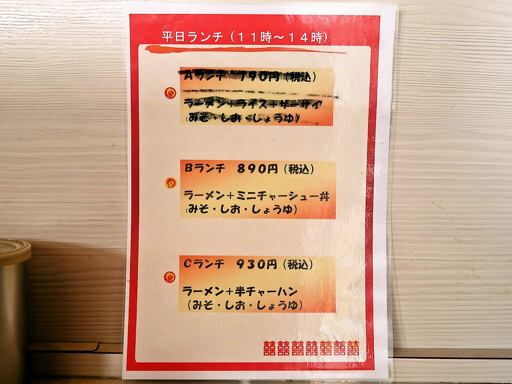 平日ランチ（１１時～１４時）
Aランチ　790円（税込）
ラーメン＋ライス＋ザーサイ
（みそ・しお・しょうゆ）
Bランチ　890円（税込）
ラーメン＋ミニチャーシュー丼
（みそ・しお・しょうゆ）
Cランチ　930円（税込）
ラーメン＋半チャーハン
（みそ・しお・しょうゆ）
囍囍囍囍囍囍囍